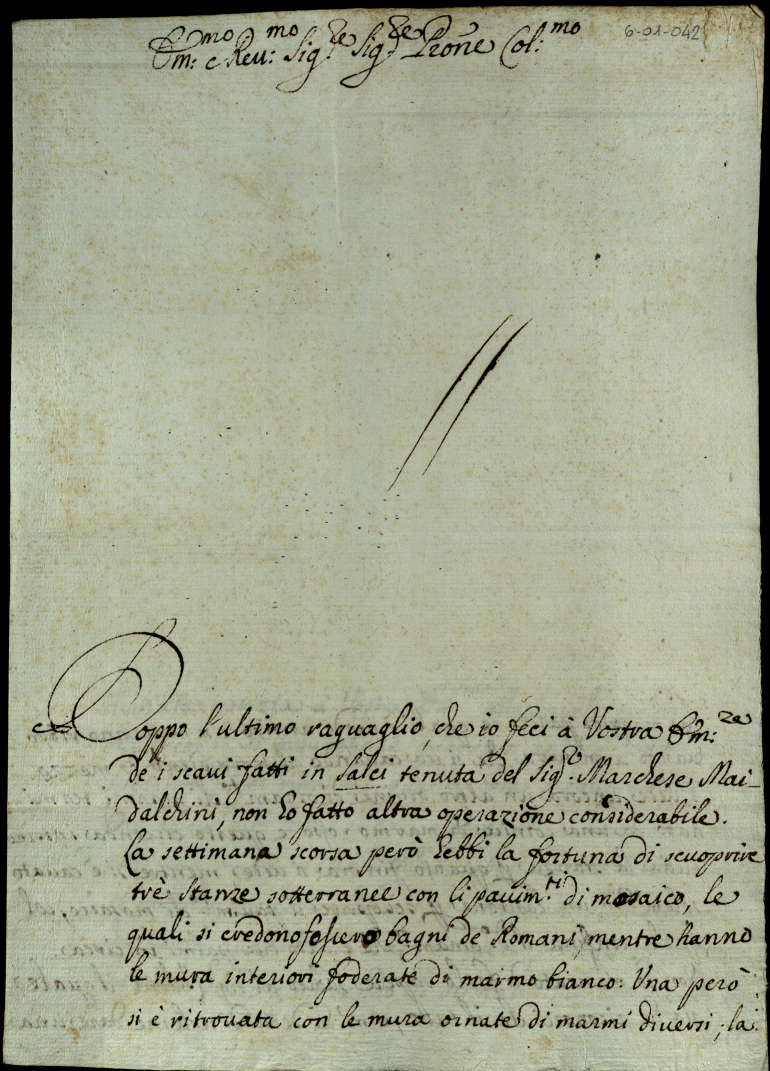 6-01-042
Em:mo e Reu:mo Sig:re Sig:re Prone Col:mo
Doppo l'ultimo raguaglio, che io feci à Vostra Em:za
de i scaui fatti in Salci tenuta del Sig:re Marchese Mai-
dalchini, non ho fatto altra operazione considerabile.
La settimana scorsa però hebbi la fortuna di scuoprire
trè stanze sotterranee con li pauim:ti di mosaico, le
quali si credono fossero bagni de Romani, mentre hanno
le mura interiori foderate di marmo bianco: Una però
si è ritrouata con le mura ornate di marmi diuersi, la